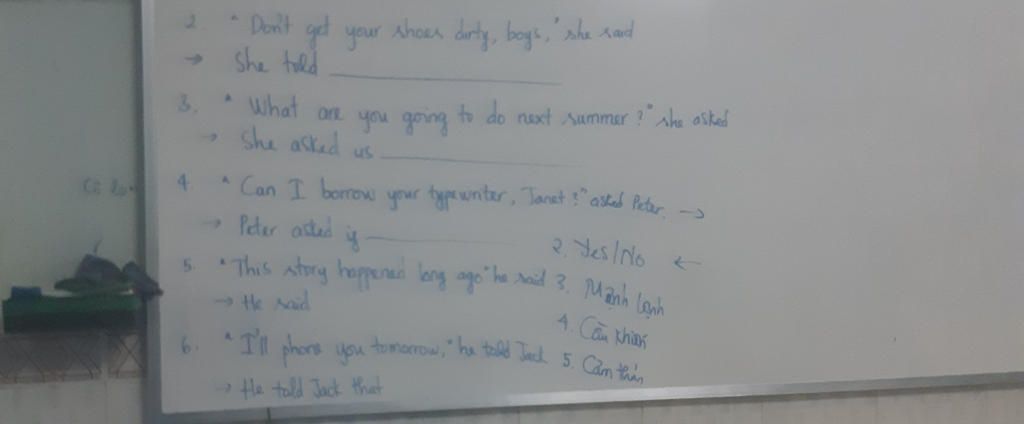 2. "Don't get your shoes dirty, boys," she said
→ She told ____________
3. "What are you going to do next summer?" she asked
→ She asked us ____________
4. "Can I borrow your typewriter, Janet?" asked Peter. →
→ Peter asked if ____________
5. "This story happened long ago" he said
→ He said
6. "I'll phone you tomorrow," he told Jack
→ He told Jack that
2. Yes/No ←
3. Mệnh lệnh
4. Câu khiến
5. Cảm thán